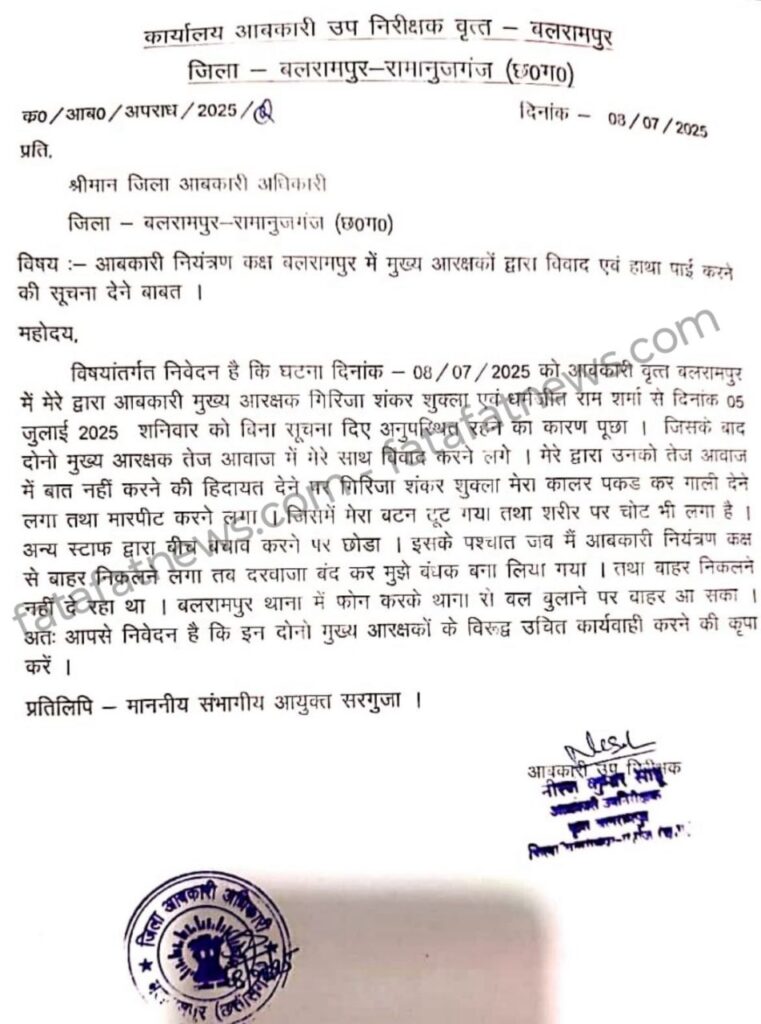 कार्यालय आबकारी उप निरीक्षक वृत्त – बलरामपुर
जिला – बलरामपुर–रामानुजगंज (छ0ग0)
क0/आब0/अपराध/2025/
दिनांक – 08/07/2025
प्रति,
श्रीमान जिला आबकारी अधिकारी
जिला – बलरामपुर–रामानुजगंज (छ0ग0)
विषय :– आबकारी नियंत्रण कक्ष बलरामपुर में मुख्य आरक्षकों द्वारा विवाद एवं हाथा पाई करने
की सूचना देने बाबत ।
महोदय,
विषयांतर्गत निवेदन है कि घटना दिनांक – 08/07/2025 को आबकारी वृत्त बलरामपुर
में मेरे द्वारा आबकारी मुख्य आरक्षक गिरिजा शंकर शुक्ला एवं राम शर्मा से दिनांक 05
जुलाई 2025 शनिवार को बिना सूचना दिए अनुपस्थित रहने का कारण पूछा । जिसके बाद
दोनो मुख्य आरक्षक तेज आवाज में मेरे साथ विवाद करने लगे । मेरे द्वारा उनको तेज आवाज
में बात नहीं करने की हिदायत देने पर गिरिजा शंकर शुक्ला मेरा कालर पकड कर गाली देने
लगा तथा मारपीट करने लगा । जिसमें मेरा बटन टूट गया तथा शरीर पर चोट भी लगा है ।
अन्य स्टाफ द्वारा बीच बचाव करने पर छोडा । इसके पश्चात जब मैं आबकारी नियंत्रण कक्ष
से बाहर निकलने लगा तब दरवाजा बंद कर मुझे बंधक बना लिया गया । तथा बाहर निकलने
नहीं दे रहा था । बलरामपुर थाना में फोन करके थाना से बल बुलाने पर बाहर आ सका ।
अतः आपसे निवेदन है कि इन दोनो मुख्य आरक्षकों के विरूद्व उचित कार्यवाही करने की कृपा
करें ।
प्रतिलिपि – माननीय संभागीय आयुक्त सरगुजा ।
fatafatnews.com - fatafatnews.com
आबकारी उप निरीक्षक
नीरज कुमार साहू
आबकारी उपनिरीक्षक
वृत्त बलरामपुर
जिला आबकारी अधिकारी
(छत्तीसगढ़)